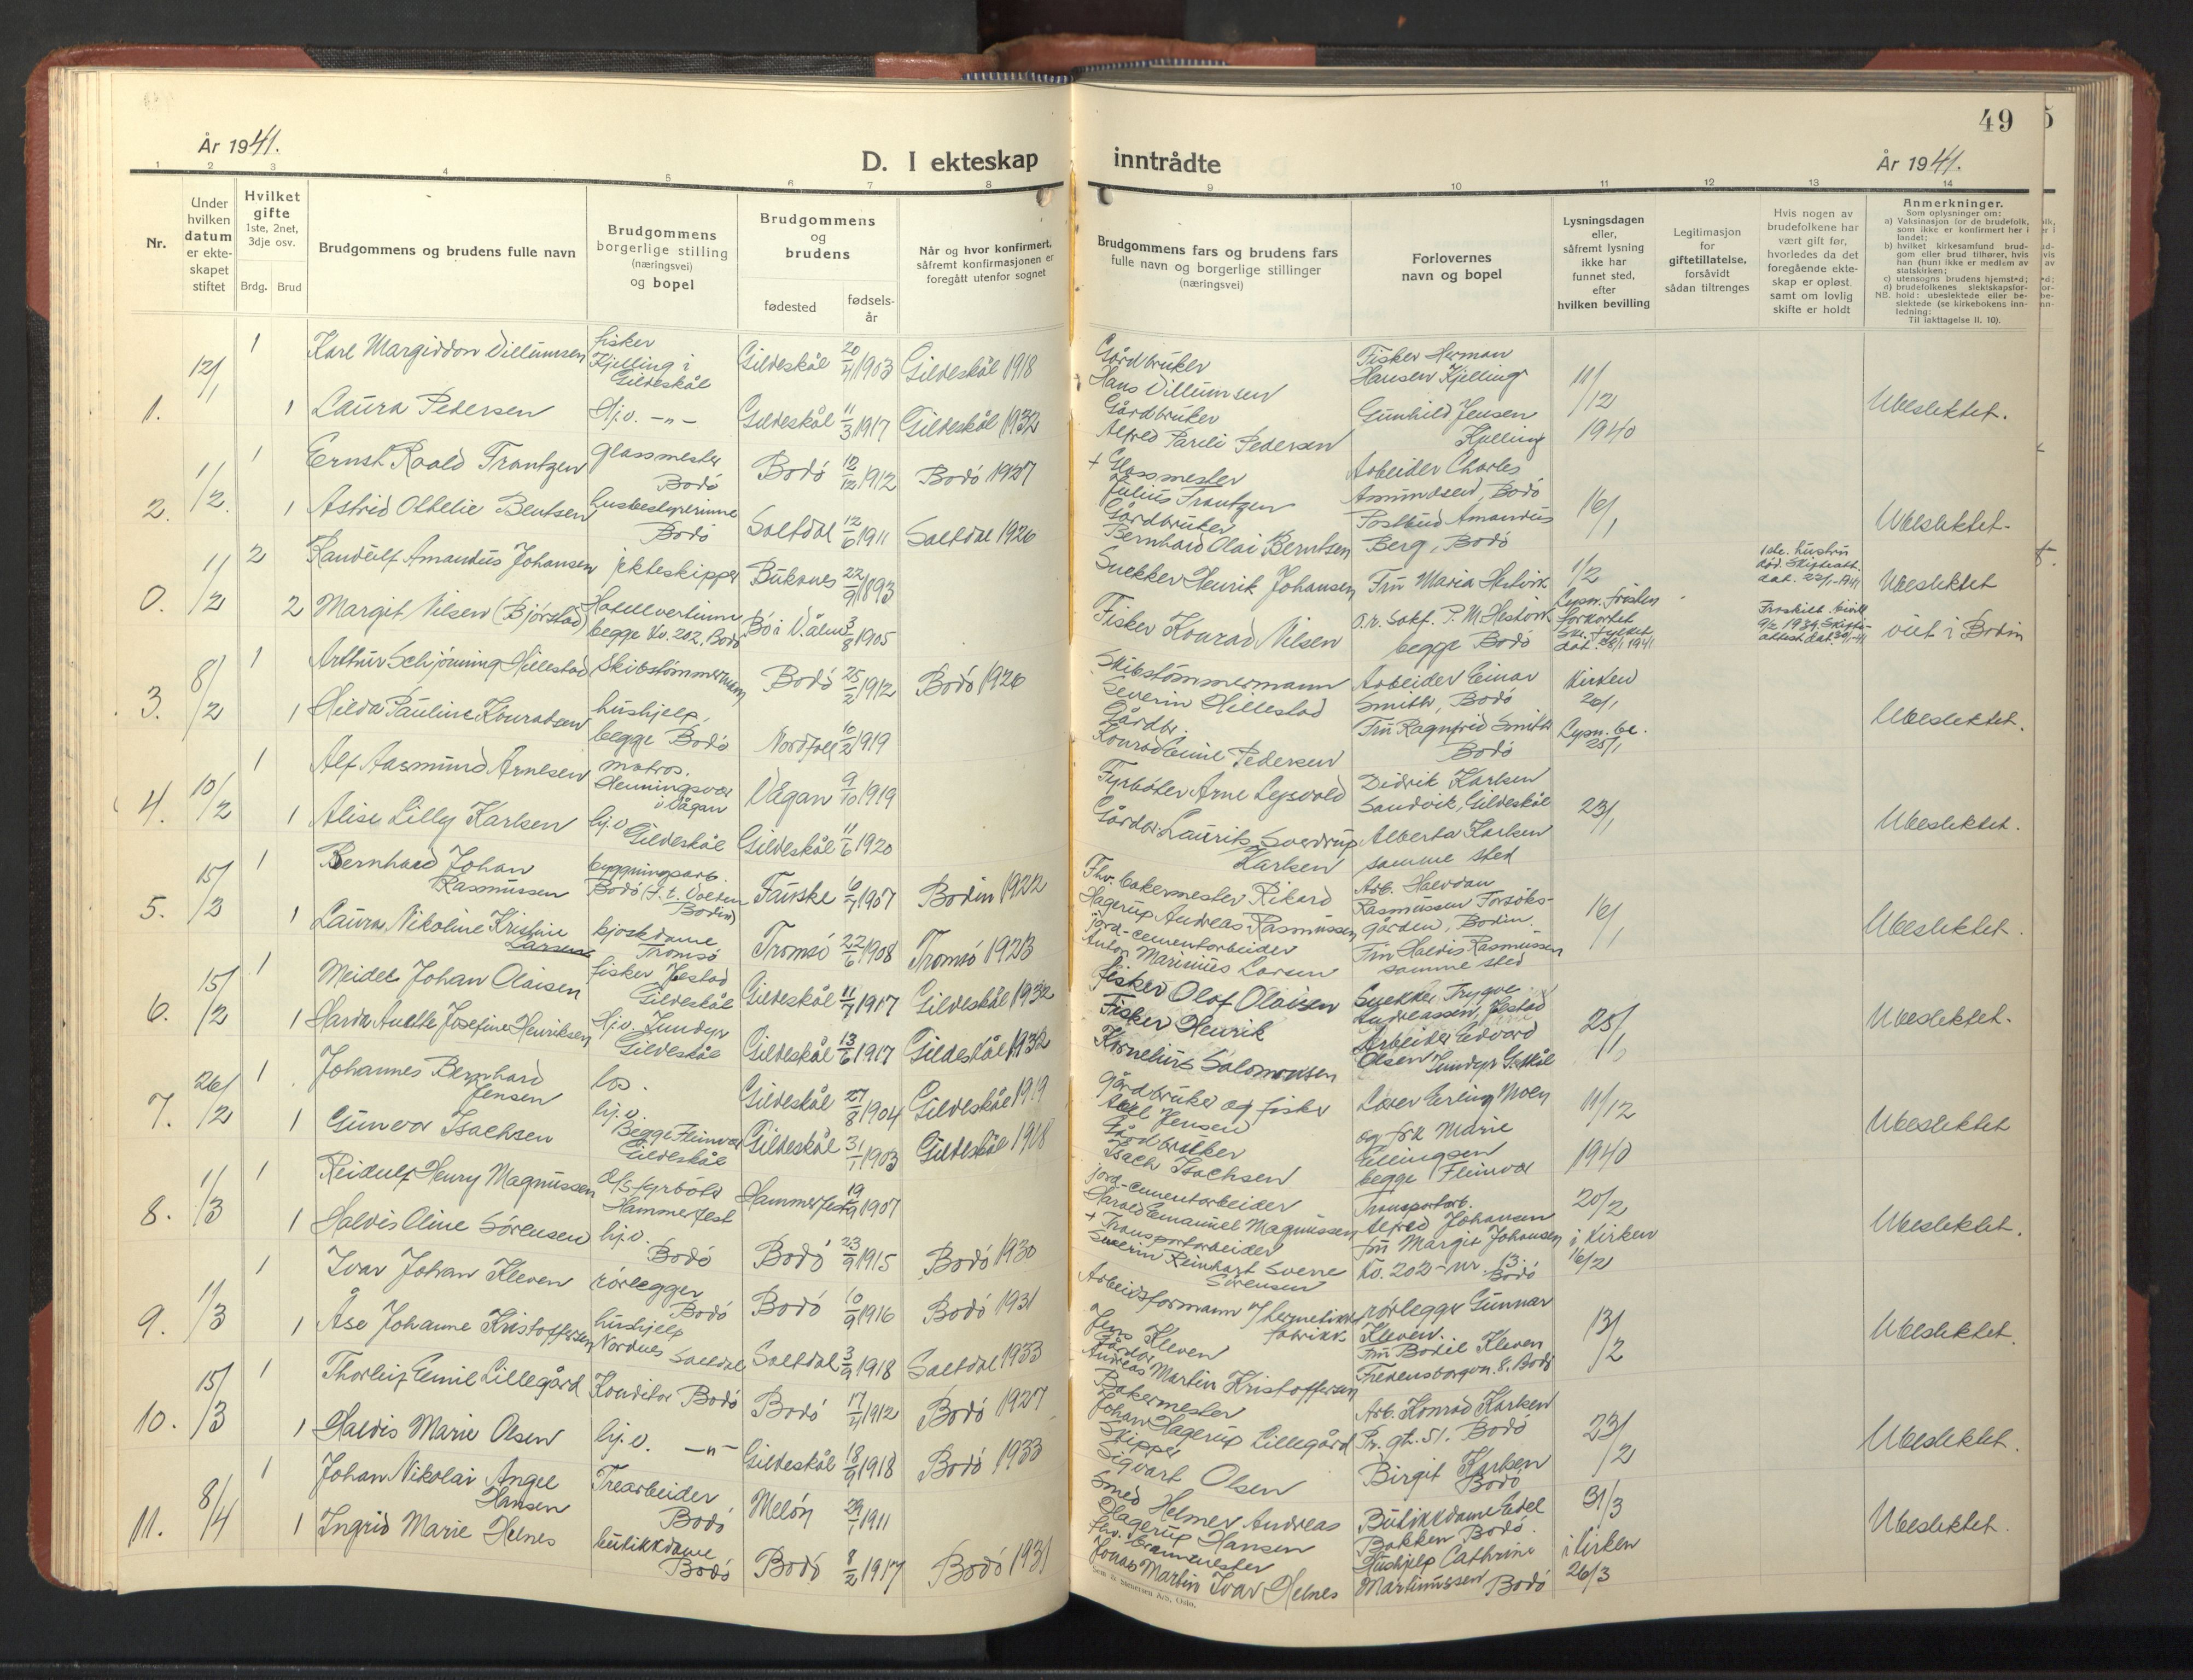 49
År 1941.
D. I ekteskap
inntrådte
År 1941.
1 2 3 4 5 6 7 8
9 10 11 12 13 14
Nr.
Under hvilken datum er ekteskapet stiftet
Hvilket gifte
1ste, 2net, 3dje osv.
Brdg. Brud
Brudgommens og brudens fulle navn
Brudgommens borgerlige stilling
(næringsvei)
og bopel
Brudgommens og brudens
fødested
fødsels-år
Når og hvor konfirmert,
såfremt konfirmasjonen er
foregått utenfor sognet
Brudgommens fars og brudens fars
fulle navn og borgerlige stillinger
(næringsvei)
Forlovernes
navn og bopel
Lysningsdagen
eller,
såfremt lysning
ikke har
funnet sted,
efter
hvilken bevilling
Legitimasjon
for
giftetillatelse,
forsåvidt
sådan tiltrenges
Hvis nogen av
brudefolkene har
vært gift før,
hvorledes da det
foregående ekte-
skap er opløst,
samt om lovlig
skifte er holdt
Anmerkninger.
Som oplysninger om:
a) Vaksinasjon for de brudefolk,
som ikke er konfirmert her i
landet;
b) hvilket kirkesamfund brud-
gom eller brud tilhører, hvis
han (hun) ikke er medlem av
statskirken;
c) utensogns brudens hjemsted;
d) brudefolkenes slektskapsfor-
NB. hold: ubeslektede eller be-
slektede (se kirkebokens inn-
ledning:
Til iakttagelse II. 10).
1. 12/1
1 Karl Margiddon Villumsen
fisker Kjelling i Gildeskål
Gildeskål 20/4 1903
Gildeskål 1918
Gårdbruker
Hans Villumsen
Fisker Herman
Hansen Kjelling
11/12 1940
1 Laura Pedersen
Hj.v. -"-
Gildeskål 11/3 1917
Gildeskål 1932
Gårdbruker
Alfred Pareli Pedersen
Gunhild Jensen
Kjelling
Ubeslektet.
2. 1/2.
1 Ernst Roald Frantzen
glassmester Bodø
Bodø 12/12 1912
Bodø 1927
+ Glassmester
Julius Frantzen
Arbeider Charles
Amundsen, Bodø
16/1
1 Astrid Othelie Bentsen
husbestyrerinne Bodø
Saltdal 12/6 1911
Saltdal 1926
Gårdbruker
Bernhard Olai Berntsen
Postbud Amandus
Berg, Bodø
Ubeslektet.
0. 1/2
2 Randulf Amandus Johansen
jekteskipper
Buksnes 22/9 1893
Snekker Henrik Johansen
Fru Maria Hestvik
1/2
2 Margit Nilsen (Bjørstad)
Hotellvertinne
begge Kv. 202, Bodø
Bø i V.ålen 3/8 1905
Fisker Konrad Nilsen
o.r. sakf. P. M. Hestvik
begge Bodø
Lysn. fristen
forkortet
Ubeslektet
viet i Bodin
3. 8/2
1 Arthur Schjønning Hillestad
Skibstømmermann
Bodø 25/2 1912
Bodø 1926
Skibstømmermann
Severin Hillestad
Arbeider Einar
Smith, Bodø
Kirken
20/1
1 Hilda Pauline Konradsen
hushjelp,
begge Bodø
Nordfold 10/2 1919
Gårdbr.
Konrad Emil Pedersen
Fru Ragnfrid Smith
Bodø
Lysn. be.
25/1
Ubeslektet.
4. 10/2
1 Alf Aasmund Arnesen
matros.
Henningsvær
i Vågan
Vågan 9/10 1919
Fyrbøter Arne Leysvold
Didrik Karlsen
Sandvik, Gildeskål
23/1
1 Alise Lilly Karlsen
hj.v Gildeskål
Gildeskål 11/6 1920
Gårdbr. Laurits Sverdrup
Karlsen
Alberta Karlsen
samme sted
Ubeslektet.
5. 15/2
1 Bernhard Johan
Rasmussen
bygningsarb.
Fauske 6/1 1907
Bodin 1922
Fhv. bakermester Rikard
Hagerup Andreas Rasmussen
Arb. Halvdan
Rasmussen Forsøks-
gården, Bodin.
16/1
1 Laura Nikoline Kristine
Larsen
kjoskdame
Tromsø
Tromsø 22/6 1908
Tromsø 1923
jord-cementarbeider
Anton Marinius Larsen
Fru Haldis Rasmussen
samme sted
Ubeslektet.
6. 15/2
1 Meidel Johan Olaisen
fisker Ystad
Gildeskål
Gildeskål 11/7 1917
Gildeskål 1932
Fisker Olaf Olaisen
Snekker Trygve
Andreassen, Ystad
25/1
1 Harda Anethe Josefine Henriksen
Hj.v. Inndyr
Gildeskål
Gildeskål 13/6 1917
Gildeskål 1932
Fisker Henrik
Kornelius Salomonsen
Arbeider Edvard
Olsen Inndyr G.skål
Ubeslektet.
7. 26/2
1 Johannes Bernhard
Jensen
los.
Gildeskål 27/8 1904
Gildeskål 1919
gårdbruker og fisker
Axel Jensen
Lærer Erling Moen
11/12
1940
1 Gunvor Isachsen
hj.v.
Begge Fleinvær
Gildeskål
Gildeskål 31/1 1903
Gildeskål 1918
Gårdbruker
Isach Isachsen
og frk Marie
Ellingsen
begge Fleinvær
Ubeslektet
8. 1/3
1 Reidulf Henry Magnussen
D/S fyrbøter
Hammerfest
Hammerfest 19/9 1907
jord-cementarbeider
Harald Emanuel Magnussen
Transportarb.
Alfred Johansen
20/2
1 Haldis Oline Sørensen
hj.v.
Bodø
Bodø 23/9 1915
Bodø 1930
+ Transportarbeider
Severin Reinhart Sverre
Sørensen
fru Margit Johansen
Kv. 202 - nr. 13.
Bodø
i Kirken
16/2
Ubeslektet.
9. 1/3
1 Ivar Johan Kleven
rørlegger
Bodø
Bodø 10/9 1916
Bodø 1931
Arbeidsformann v/ hermetikk
fabrikk
Jens Kleven
rørlegger Gunnar
Kleven.
13/2
1 Åse Johanne Kristoffersen
hushjelp
Nordnes Saltdal
Saltdal 3/9 1918
Saltdal 1933
Gårdbr.
Andreas Martin Kristoffersen
Fru Bodil Kleven
Fredensborgvn. 8. Bodø
Ubeslektet.
10. 15/3
1 Thorleif Emil Lillegård
Konditor Bodø
Bodø 17/4 1912
Bodø 1927
Bakermester
Johan Hagerup Lillegård
Arb. Konrad Karlsen
Pr. gt. 51. Bodø
23/2
1 Haldis Marie Olsen
hj.v. -"-
Gildeskål 18/9 1918
Bodø 1933
Skipper
Sigvart Olsen
Birgit Karlsen
Bodø
Ubeslektet.
11. 8/4
1 Johan Nikolai Angel
Hansen
Trearbeider
Bodø
Meløy 29/7 1911
Smed Helmer Andreas
Hagerup Hansen
Butikkdame Edel
Bakken Bodø.
31/3
1 Ingrid Marie Helnes
butikkdame
Bodø
Bodø 8/2 1917
Bodø 1931
Jonas Martin Ivar Helnes
Hushjelp Cathrine
Martinussen Bodø
i Kirken
26/3
Ubeslektet.
Sem & Stenersen A/S, Oslo.